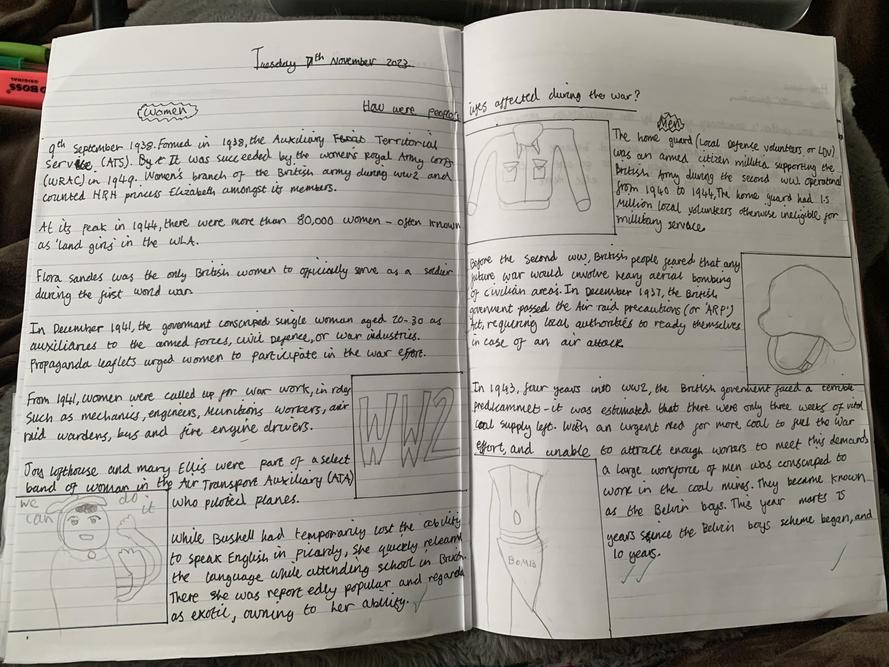 Tuesday 7th November 2023
How were people's lives affected during the war?
Women
9th September 1938. Formed in 1938, the Auxiliary Territorial
Service (ATS). By It was succeeded by the women's Royal Army corps
(WRAC) in 1949. Women's branch of the British army during ww2 and
counted HRH princess Elizabeth amongst its members.
At its peak in 1944, there were more than 80,000 women - often known
as 'land girls' in the WLA.
Flora Sandes was the only British women to officially serve as a soldier
during the first world war
In December 1941, the goverment conscriped single woman aged 20-30 as
auxiliaries to the armed forces, civil defence, or war industries.
Propaganda leaflets urged women to participate in the war effort.
From 1941, women were called up for war work, in roles
Such as mechanics, engineers, Munitions workers, air
raid wardens, bus and fire engine drivers.
WW2
Joy lofthouse and mary Ellis were part of a select
band of woman in the Air Transport Auxiliary (ATA)
who piloted planes.
we can do it
While Bushell had temporarily lost the ability
to speak English in Picardy, She quickly relearn
the language while attending school in
There she was report edly popular and regarde
as exotic, owning to her ability.
Men
The home guard (Local defense volunteers or LDV)
was an armed citizen militia supporting the
British Army during the second ww2 operational
from 1940 to 1944, The home guard had 1.5
Million local volunteers otherwise ineligible for
millitary service.
Before the Second ww, British people feared that any
future war would involve heavy aerial bombing
of civilian areas. In December 1937, the British
goverment passed the Air raid precautions (or 'ARP')
Act, requiring local authorities to ready themselves
in case of an air attack
In 1943, four years into WW2, the British goverment faced a terrible
predicammet - it was estimated that there were only three weeks of vital
coal supply left. With an urgent need for more coal to fuel the war
effort, and unable to attract enough workers to meet this demands
a large workforce of men was conscriped to
work in the coal mines. They became known
as the Belvin boys. This year marts 75
years since the Belvin boys scheme began, and
10 years.
BOMB
BOSS
ORIGINAL